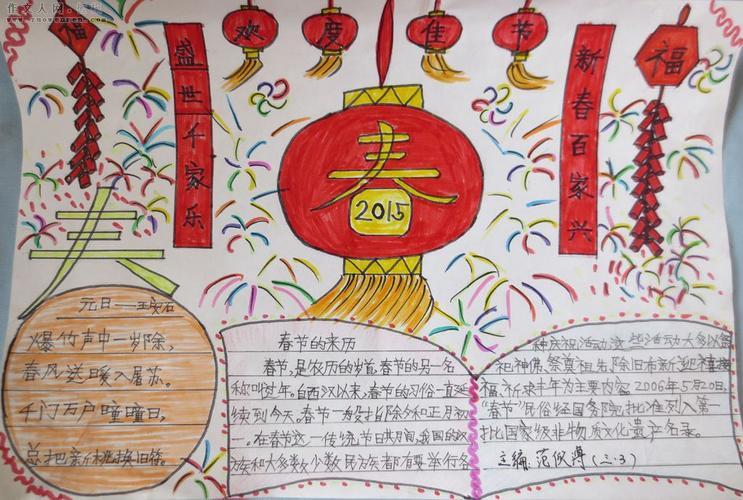 作文人网
福
欢度佳节
福
盛世千家乐
新春百家兴
春
2015
春
元日——王安石
爆竹声中一岁除,
春风送暖入屠苏。
千门万户曈曈日,
总把新桃换旧符。
春节的来历
春节,是农历的岁首,春节的另一名
称叫过年。自西汉以来,春节的习俗一直延
续到今天。春节一般指除夕和正月初
一。在春节这一传统节日其间,我国的汉
族和大多数少数民族都有要举行各
种庆祝活动,这些活动大多以
祀神佛、祭奠祖先、除旧布新、迎禧接
福、祈求丰年为主要内容。2006年5月20日,
“春节”民俗经国务院批准列入第一
批国家级非物质文化遗产名录。
主编:范仪博(三·3)